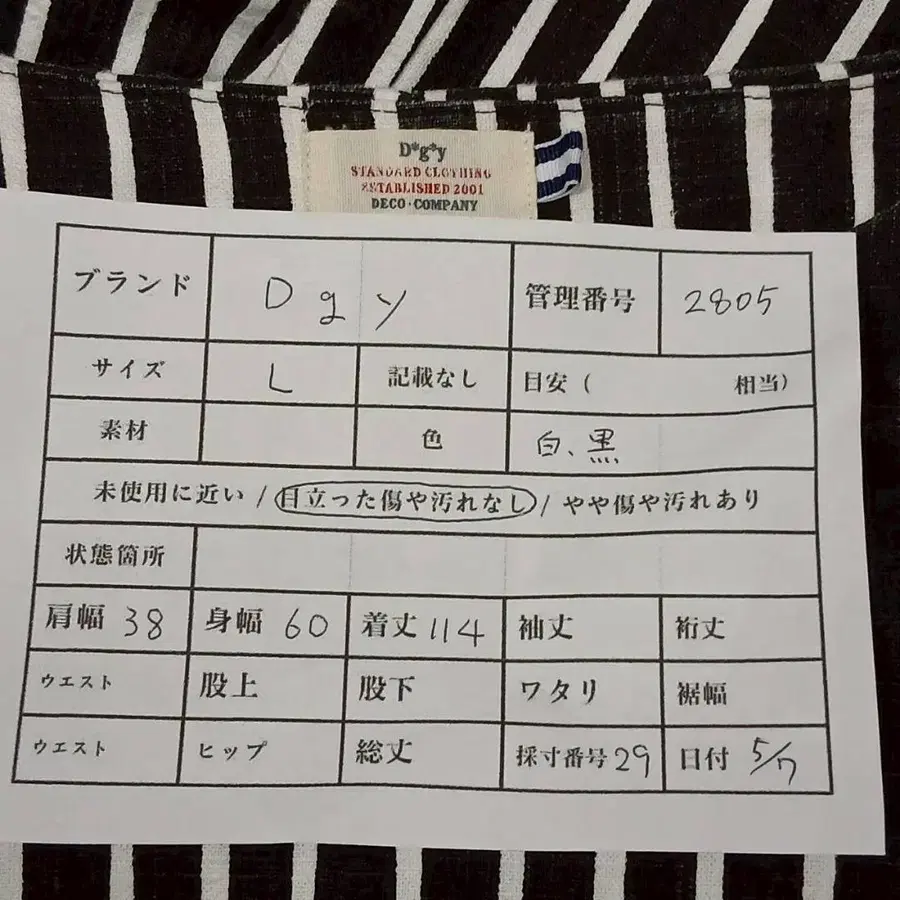 D*g*y
STANDARD CLOTHING
ESTABLISHED 2001
DECO・COMPANY
ブランド Dgy 管理番号 2805
サイズ L 記載なし 目安 ( 相当)
素材 色 白、黒
未使用に近い / 目立った傷や汚れなし / やや傷や汚れあり
状態箇所
肩幅 38 身幅 60 着丈 114 袖丈 裄丈
ウエスト 股上 股下 ワタリ 裾幅
ウエスト ヒップ 総丈 採寸番号 29 日付 5/7